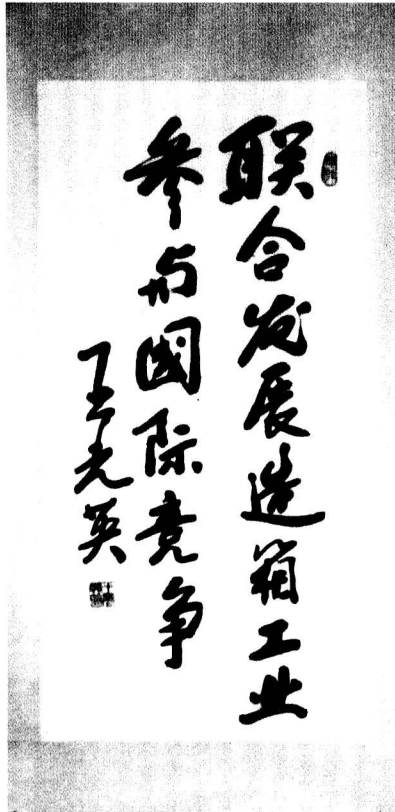 联合发展造箱工业
参与國际竞争
王光英